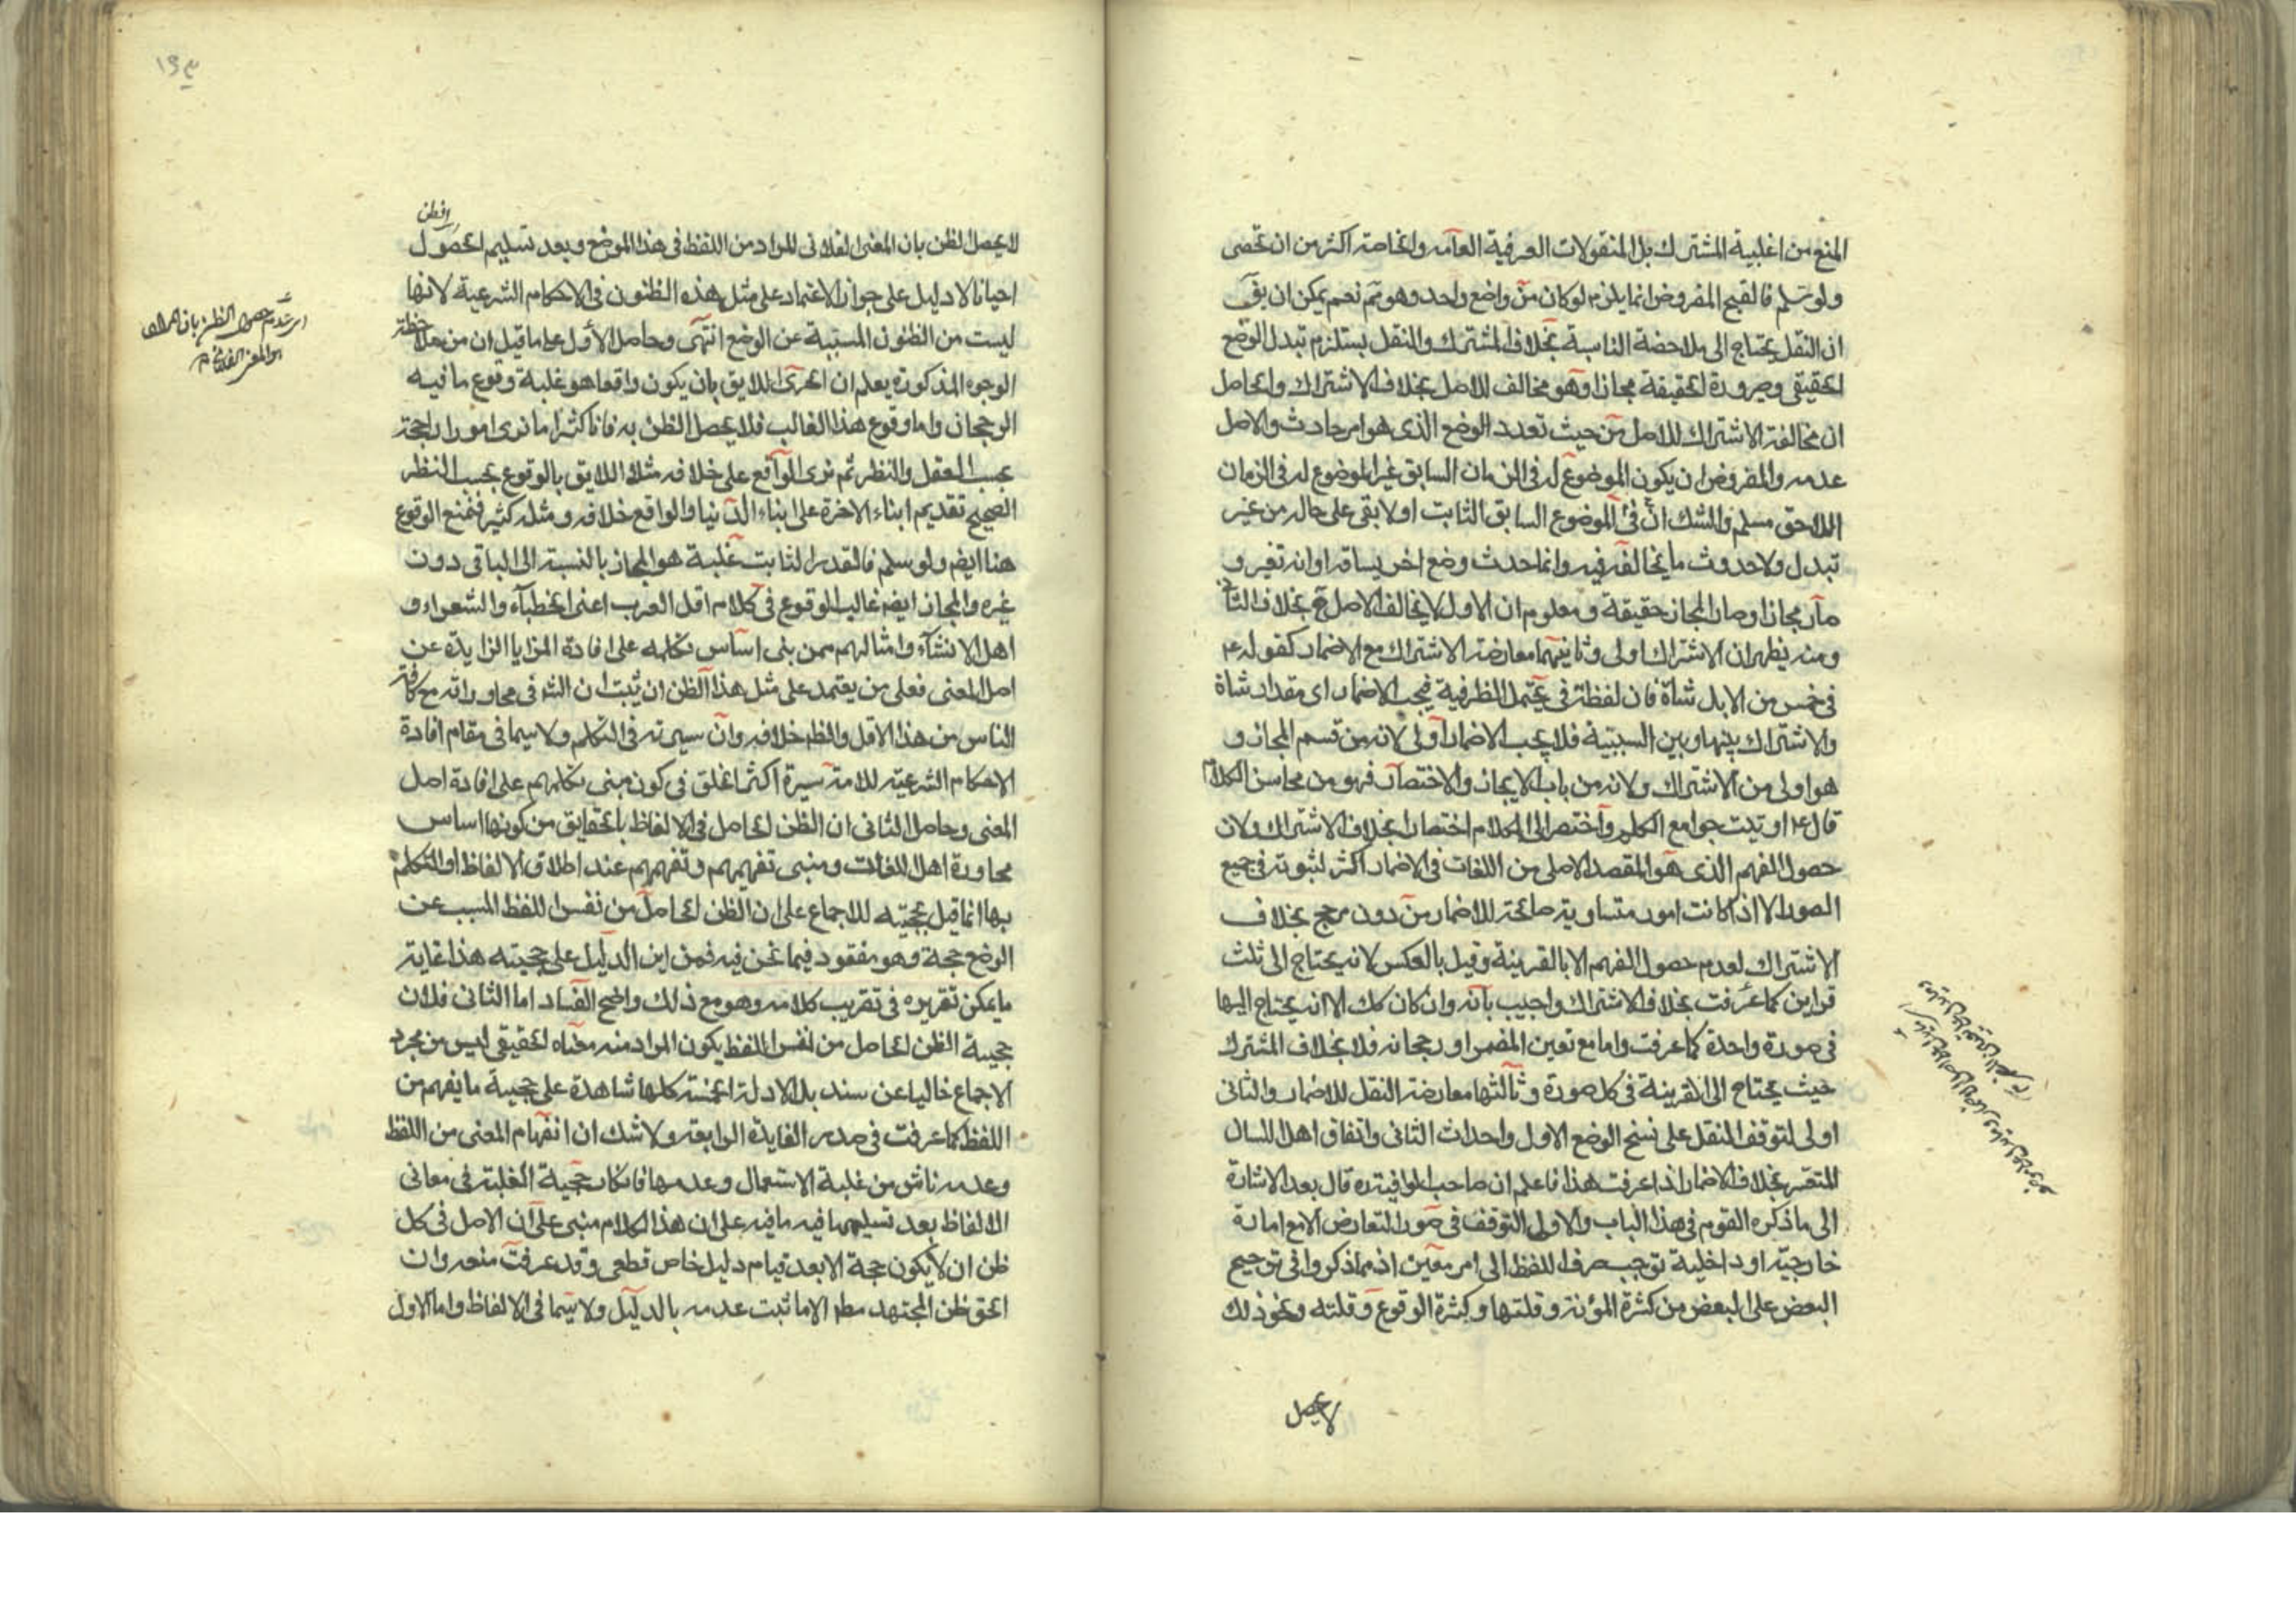 المنع من اغلبية المشترك بل المنقولات العرفية العامه والخاصة اكثر من ان تحصى
ولو سلم فالقبح المفروض انما يلزم لو كان من واضع واحد وهو تم نعم يمكن ان يق
ان النقل يحتاج الى ملاحضة المناسبة بخلاف المشترك والنقل يستلزم تبدل الوضع
الحقيقى وصيرورة الحقيقة مجازا وهو مخالف للاصل بخلاف الاشتراك والحاصل
ان مخالفة الاشتراك للاصل من حيث تعدد الوضع الذى هو امر حادث والاصل
عدمه والمفروض ان يكون الموضوع له فى الزمان السابق غير الموضوع له فى الزمان
اللاحق مسلم والشك ان فى الموضوع السابق الثابت اولا بقى على حاله من غير
تبدل ولا حدوث ما يخالفه فيه وانما حدث وضع اخر يساقه او انه تغير و
صار مجازا وصار المجاز حقيقة ومعلوم ان الاول لا يخالف الاصل قع بخلاف الثانى
ومنه يظهر ان الاشتراك اولى وثانيتهما معارضة الاشتراك مع الاضمار كقوله عم
فى خمس من الابل شاة فان لفظة فى يحتمل الظرفية فيجب الاضمار اى مقدار شاة
والاشتراك بينها وبين السببية فلا يجب الاضمار اولى لانه من قسم المجاز و
هو اولى من الاشتراك ولانه من باب الايجاز والاختصار فهو من محاسن الكلام
قال ع اوتيت جوامع الكلم واختصر الى الكلام اختصارا بخلاف الاشتراك ولان
حصول الفهم الذى هو المقصد الاصلى من اللغات فى الاضمار اكثر لثبوته فى جميع
الصور الا اذا كانت امور متساوية صالحة للاضمار من دون مرجح بخلاف
الاشتراك لعدم حصول الفهم الا بالقرينة وقيل بالعكس لانه يحتاج الى ثلث
قراين كما عرفت بخلاف الاشتراك واجيب بانه وان كان كك الا انه يحتاج اليها
فى صورة واحدة كما عرفت واما مع تعين المضمر او رجحانه فلا بخلاف المشترك
حيث يحتاج الى القرينة فى كل صورة وثالثها معارضة النقل للاضمار والثانى
اولى لتوقف النقل على نسخ الوضع الاول واحداث الثانى واتفاق اهل اللسان
المتعسر بخلاف الاضمار اذا عرفت هذا فاعلم ان صاحب الوافية ره قال بعد الاشارة
الى ما ذكره القوم فى هذا الباب والاولى التوقف فى صور التعارض الا مع امارة
خارجية او داخلية توجب صرف اللفظ الى امر معين اذ مما ذكروا فى ترجيح
البعض على البعض من كثرة المؤنة وقلتها وكثرة الوقوع وقلته ونحو ذلك
لا يحصل
١٩٣
لا يحصل الظن بان المعنى الفلانى المراد من اللفظ فى هذا الموضع وبعد تسليم الحصول
احيانا لا دليل على جواز الاعتماد على مثل هذه الظنون فى الاحكام الشرعية لانها
ليست من الظنون المسببة عن الوضع انتهى وحاصل الأول على ما قيل ان من ملاحظة
الوجوه المذكورة يعلم ان الحرى اللايق بان يكون واقعا هو غلبة وقوع ما فيه
الرجحان واما وقوع هذا الغالب فلا يحصل الظن به فانا كثيرا ما نرى امورا راجحة
بحسب العقل والنظر ثم نرى الواقع على خلافه مثلا اللايق بالوقوع بحسب النظر
الصحيح تقديم ابناء الاخرة على ابناء الدنيا والواقع خلافه ومثله كثير فنمنع الوقوع
هنا ايضم ولو سلم فالقدر الثابت غلبة هو المجاز بالنسبة الى الباقى دون
غيره والمجاز ايضم غالب الوقوع فى كلام اقل العرب اعنى الخطباء والشعراء و
اهل الانشآء وامثالهم ممن بنى اساس تكلمه على افادة المزايا الزايدة عن
اصل المعنى فعلى من يعتمد على مثل هذا الظن ان يثبت ان الشر فى محاوراته مع كافة
الناس من هذا الاقل والظم خلافه وان سيرته فى التكلم ولا سيما فى مقام افادة
الاحكام الشرعية للامة سيرة اكثر الخلق فى كون مبنى تكلمهم على افادة اصل
المعنى وحاصل الثانى ان الظن الحاصل فى الالفاظ بالحقايق من كونها اساس
محاورة اهل اللغات ومبنى تفهيمهم وتفهمهم عند اطلاق الالفاظ او التكلم
بها انما قيل بحجيته للاجماع على ان الظن الحاصل من نفس اللفظ المسبب عن
الوضع حجة وهو مفقود فيما نحن فيه فمن اين الدليل على حجيته هذا غاية
ما يمكن تقريره فى تقريب كلامه وهو مع ذلك واضح الفساد اما الثانى فلان
حجية الظن الحاصل من نفس اللفظ يكون المراد منه معناه الحقيقى ليس من مجرد
الاجماع خاليا عن سند بل الادلة الخمسة كلها شاهدة على حجية ما يفهم من
اللفظ كما عرفت فى صدر الفايدة الرابعة ولا شك ان انفهام المعنى من اللفظ
وعدمه ناش من غلبة الاستعمال وعدمها فانكار حجية الغلبة فى معانى
الالفاظ بعد تسليمها فيه ما فيه على ان هذا الكلام مبنى على ان الاصل فى كل
ظن ان لا يكون حجة الا بعد قيام دليل خاص قطعى وقد عرفت منعه وان
الحق ظن المجتهد مطر الا ما ثبت عدمه بالدليل ولا سيما فى الالفاظ واما الاول